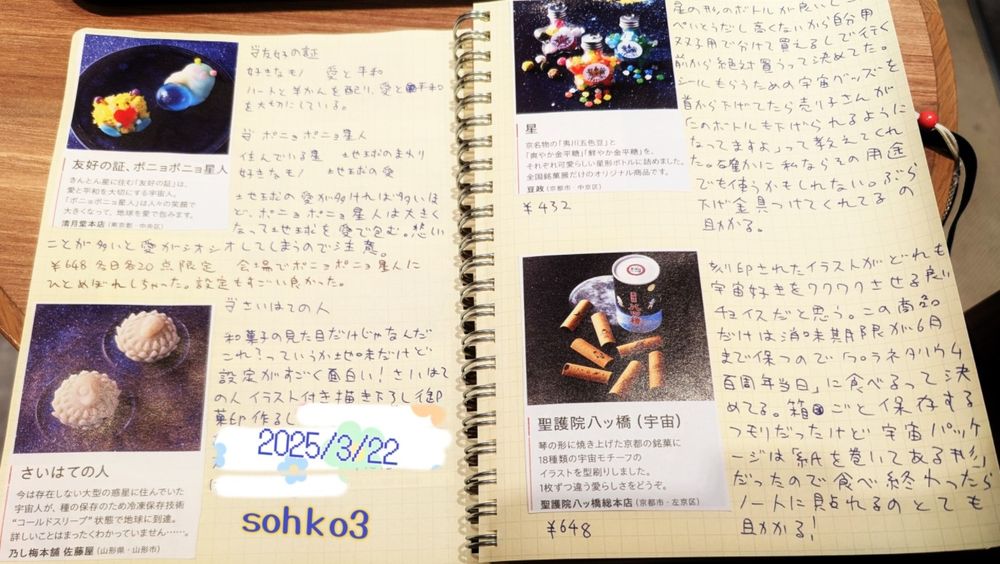 ☆友好の証
好きなも/ 愛と平和
ハートと羊かんを配り、愛と平和
を大切にしている。
☆ ポニョポニョ星人
住んでいる星 地球のまわり
好きなも/ 地球の愛
地球の愛が多ければ多いほ
ど、ポニョポニョ星人は大きく
なって地球を愛で包む。悲しい
ことが多いと愛がシオシオしてしまうので注意。
¥648 各日各20点限定 会場でポニョポニョ星人に
ひとめぼれしちゃった。設定もすごい良かった。
友好の証、ポニョポニョ星人
きんとん星に住む「友好の証」は、
愛と平和を大切にする宇宙人。
「ポニョポニョ星人」は人々の笑顔で
大きくなって、地球を愛で包みます。
清月堂本店(東京都・中央区)
☆さいはての人
和菓子の見た目だけじゃなんだ
これ?っていうか地味だけど
設定がすごく面白い!さいはて
の人イラスト付き描き下ろし御
菓印作るし
2025/3/22
sohko3
さいはての人
今は存在しない大型の惑星に住んでいた
宇宙人が、種の保存のため冷凍保存技術
“コールドスリープ”状態で地球に到達。
詳しいことはまったくわかっていません……。
乃し梅本舗 佐藤屋(山形県・山形市)
星の形のボトルが良いしこ
ぺいとうだし高くないから自分用
双子用で分けて買えるしで行く
前から絶対買うって決めてた。
シールもらうための宇宙グッズを
首から下げてたら売り子さんが
「このボトルも下げられるように
なってますよ」って教えてくれ
た。確かに私ならその用途
でも使うかもしれない。ぶら
下げ金具つけてくれてるの
助かる。
星
京名物の「夷川五色豆」と
「爽やか金平糖」「鮮やか金平糖」を、
それぞれ可愛らしい星形ボトルに詰めました。
全国銘菓展だけのオリジナル商品です。
豆政(京都市・中京区)
¥432
刻印されたイラストがどれも
宇宙好きをワクワクさせる良い
チョイスだと思う。この商品
だけは消味期限が6月
まで保つので「プラネタリウム
百周年当日」に食べるって決
めてる。箱ごと保存する
つモリだったけど宇宙パッケ
ージは紙を巻いてある形
だったので食べ終わったら
ノートに貼れるのとても
助かる!
聖護院八ッ橋(宇宙)
琴の形に焼き上げた京都の銘菓に
18種類の宇宙モチーフの
イラストを型刷りしました。
1枚ずつ違う愛らしさをどうぞ。
聖護院八ッ橋総本店(京都市・左京区)
¥648